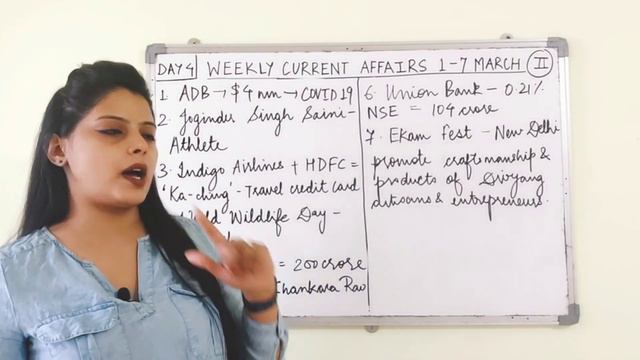 DAY 4 WEEKLY CURRENT AFFAIRS 1-7 MARCH II
1. ADB → $4 mn → COVID19
2. Joginder Singh Saini -
Athlete
3. Indigo Airlines + HDFC =
'Ka-ching' - Travel credit card
Wildlife Day -
= 200 crore
Shankara Rao
6. Union Bank - 0.21%
NSE = 104 crore
7. Ekam Fest - New Delhi
promote craftsmanship &
products of Divyang
artisans & entrepreneurs.